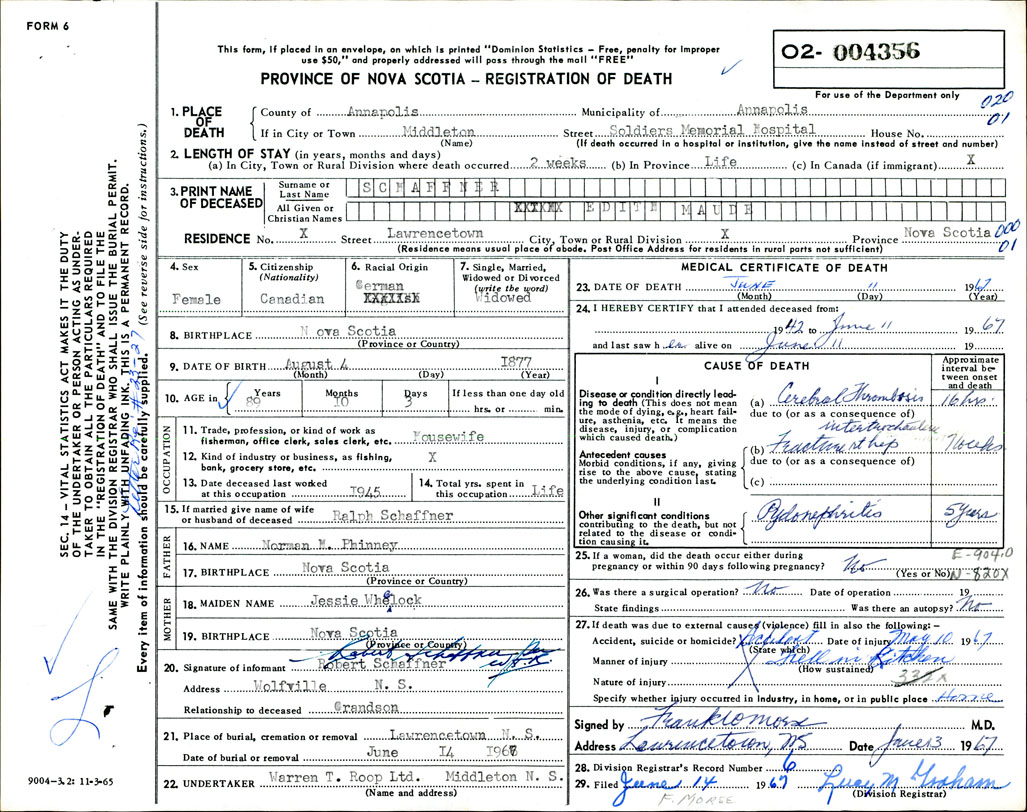 FORM 6
This form, if placed in an envelope, on which is printed "Dominion Statistics – Free, penalty for improper
use $50," and properly addressed will pass through the mail "FREE"
PROVINCE OF NOVA SCOTIA – REGISTRATION OF DEATH
02- 004356
For use of the Department only
020
01
1. PLACE OF DEATH
County of Annapolis Municipality of Annapolis
If in City or Town Middleton Street Soldiers Memorial Hospital House No.
(Name) (If death occurred in a hospital or institution, give the name instead of street and number)
2. LENGTH OF STAY (in years, months and days)
(a) In City, Town or Rural Division where death occurred 2 weeks (b) In Province Life (c) In Canada (if immigrant) X
3. PRINT NAME OF DECEASED
Surname or Last Name SCHAFFNER
All Given or Christian Names XXXXX EDITH MAUDE
RESIDENCE No. X Street Lawrencetown City, Town or Rural Division X Province Nova Scotia
000
01
(Residence means usual place of abode. Post Office Address for residents in rural parts not sufficient)
4. Sex
Female
5. Citizenship
(Nationality)
Canadian
6. Racial Origin
German
7. Single, Married,
Widowed or Divorced
(write the word)
Widowed
8. BIRTHPLACE Nova Scotia
(Province or Country)
9. DATE OF BIRTH August 4 1877
(Month) (Day) (Year)
10. AGE in Years Months Days If less than one day old
89 10 3 hrs. or min.
OCCUPATION
11. Trade, profession, or kind of work as
fisherman, office clerk, sales clerk, etc. Housewife
12. Kind of industry or business, as fishing,
bank, grocery store, etc. X
13. Date deceased last worked
at this occupation 1945
14. Total yrs. spent in
this occupation Life
15. If married give name of wife
or husband of deceased Ralph Schaffner
FATHER
16. NAME Norman M. Phinney
17. BIRTHPLACE Nova Scotia
(Province or Country)
MOTHER
18. MAIDEN NAME Jessie Whelock
19. BIRTHPLACE Nova Scotia
(Province or Country)
20. Signature of informant Robert Schaffner
Address Wolfville N. S.
Relationship to deceased Grandson
21. Place of burial, cremation or removal Lawrencetown N. S.
Date of burial or removal June 14 1967
22. UNDERTAKER Warren T. Roop Ltd. Middleton N. S.
(Name and address)
MEDICAL CERTIFICATE OF DEATH
23. DATE OF DEATH JUNE 11 1967
(Month) (Day) (Year)
24. I HEREBY CERTIFY that I attended deceased from:
1942 to June 11 1967
and last saw her alive on June 11 19
CAUSE OF DEATH
Approximate
interval between onset
and death
I
Disease or condition directly leading to death (This does not mean
the mode of dying, e.g., heart failure, asthenia, etc. It means the
disease, injury, or complication
which caused death.)
(a) Cerebral Thrombosis 16 hrs.
due to (or as a consequence of)
Antecedent causes
Morbid conditions, if any, giving
rise to the above cause, stating
the underlying condition last.
(b) Fracture rt hip
due to (or as a consequence of)
(c)
II
Other significant conditions
contributing to the death, but not
related to the disease or condition causing it.
Pydonephritis 5 years
25. If a woman, did the death occur either during
pregnancy or within 90 days following pregnancy? No
(Yes or No)
E-904.0
N-820X
26. Was there a surgical operation? No Date of operation 19
State findings Was there an autopsy? No
27. If death was due to external causes (violence) fill in also the following: –
Accident, suicide or homicide? Accident Date of injury May 10 1967
(State which)
Manner of injury Fell in Kitchen
(How sustained)
Nature of injury
Specify whether injury occurred in industry, in home, or in public place Home
Signed by Frank W Morse M.D.
Address Lawrencetown, NS Date June 13 1967
28. Division Registrar's Record Number 6
29. Filed June 14 1967 Lucy M. Graham
(Division Registrar)
F. MORSE
SEC. 14 – VITAL STATISTICS ACT MAKES IT THE DUTY
OF THE UNDERTAKER OR PERSON ACTING AS UNDER-
TAKER TO OBTAIN ALL THE PARTICULARS REQUIRED
IN THE "REGISTRATION OF DEATH" AND TO FILE THE
SAME WITH THE DIVISION REGISTRAR WHO SHALL ISSUE THE BURIAL PERMIT.
WRITE PLAINLY WITH UNFADING INK. THIS IS A PERMANENT RECORD.
Every item of information should be carefully supplied. (See reverse side for instructions.)
9004–3.2: 11-3-65